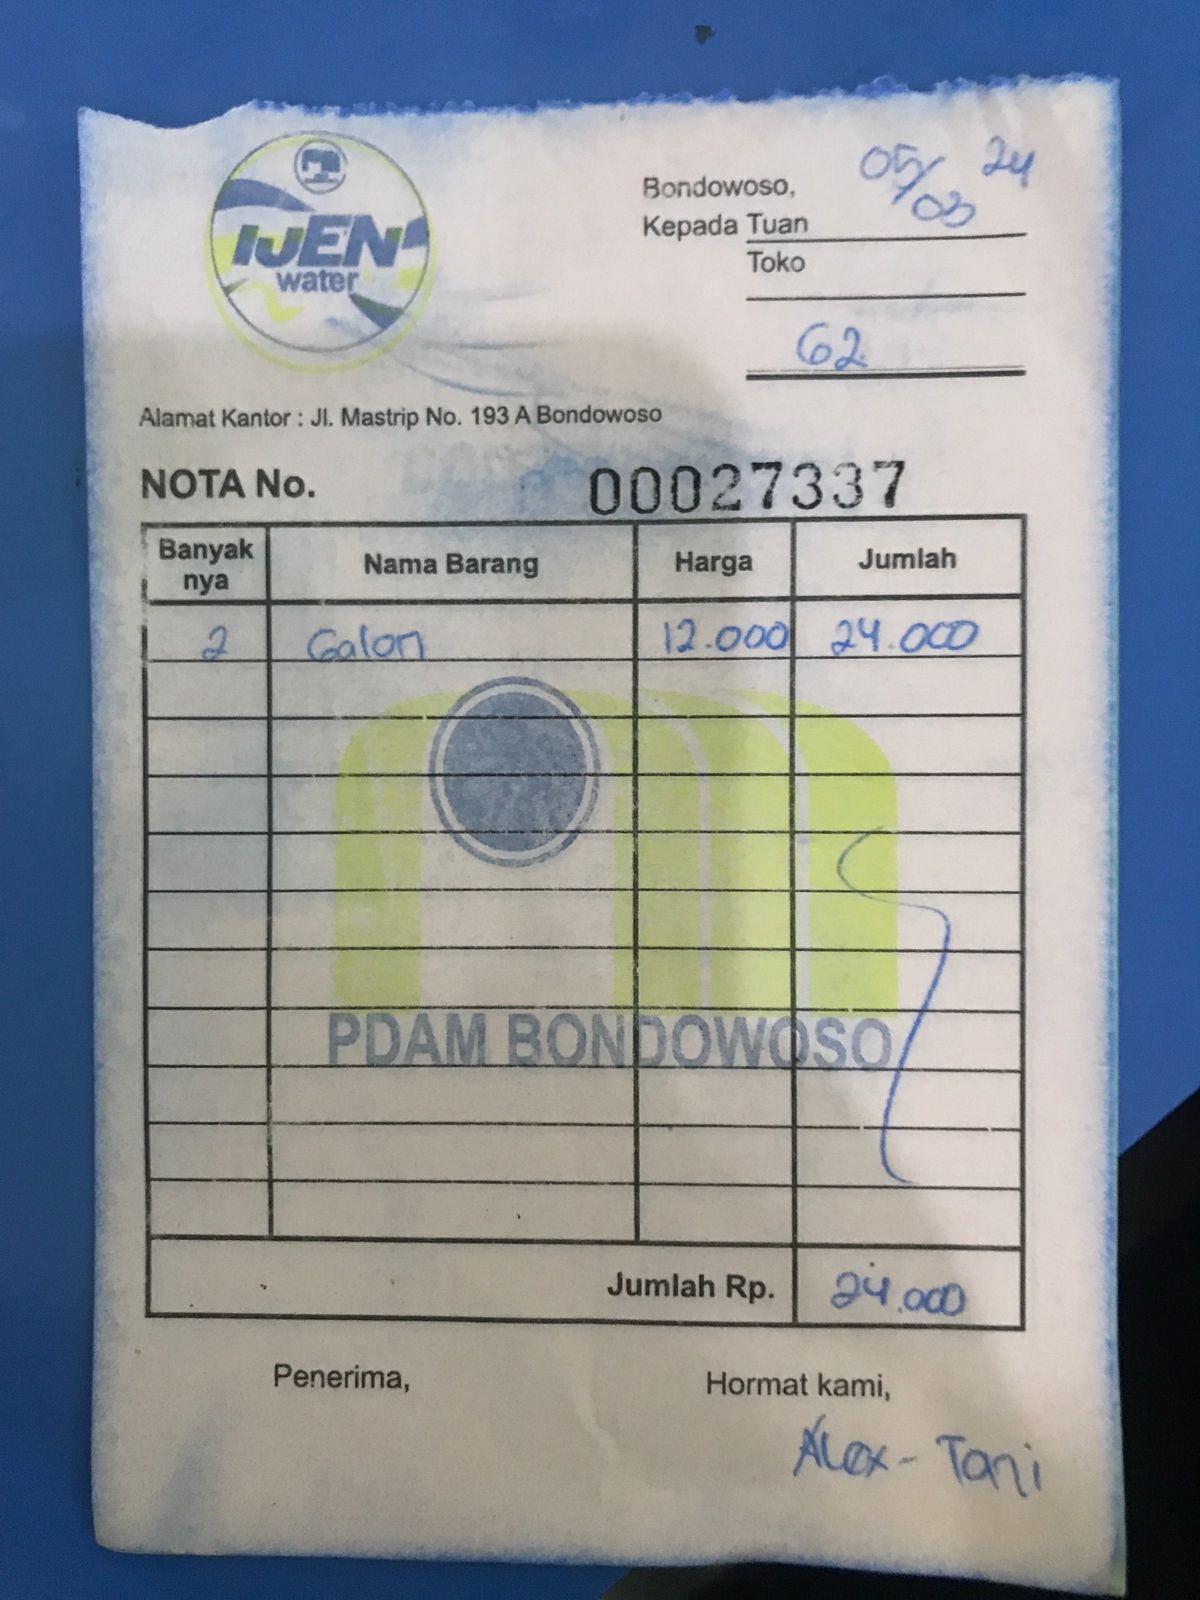 IJEN
water
Bondowoso, 05/03 24
Kepada Tuan
Toko
62
Alamat Kantor : Jl. Mastrip No. 193 A Bondowoso
NOTA No. 00027337
Banyak nya Nama Barang Harga Jumlah
2 Galon 12.000 24.000
PDAM BONDOWOSO
Jumlah Rp. 24.000
Penerima, Hormat kami,
Alex - Toni